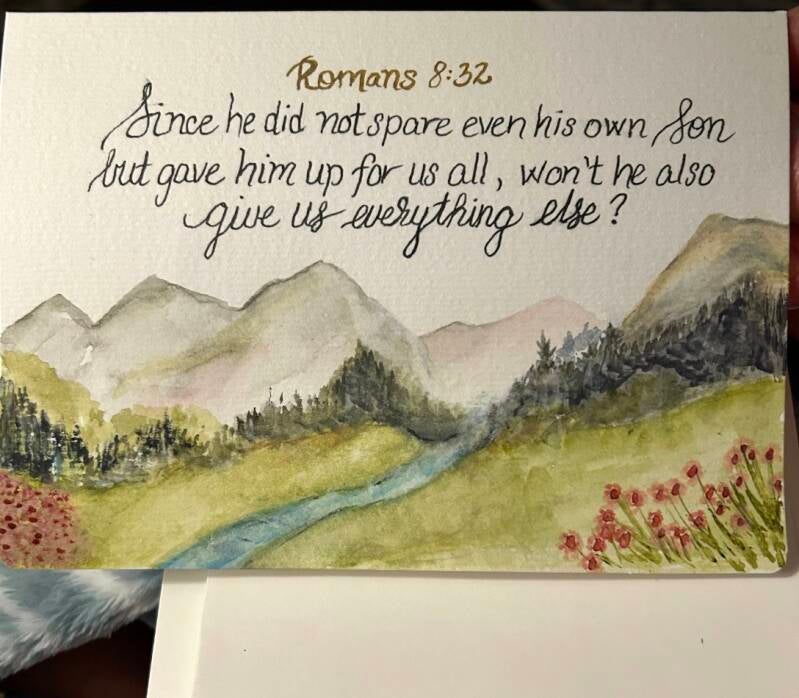 Romans 8:32
Since he did not spare even his own Son
but gave him up for us all, won't he also
give us everything else?